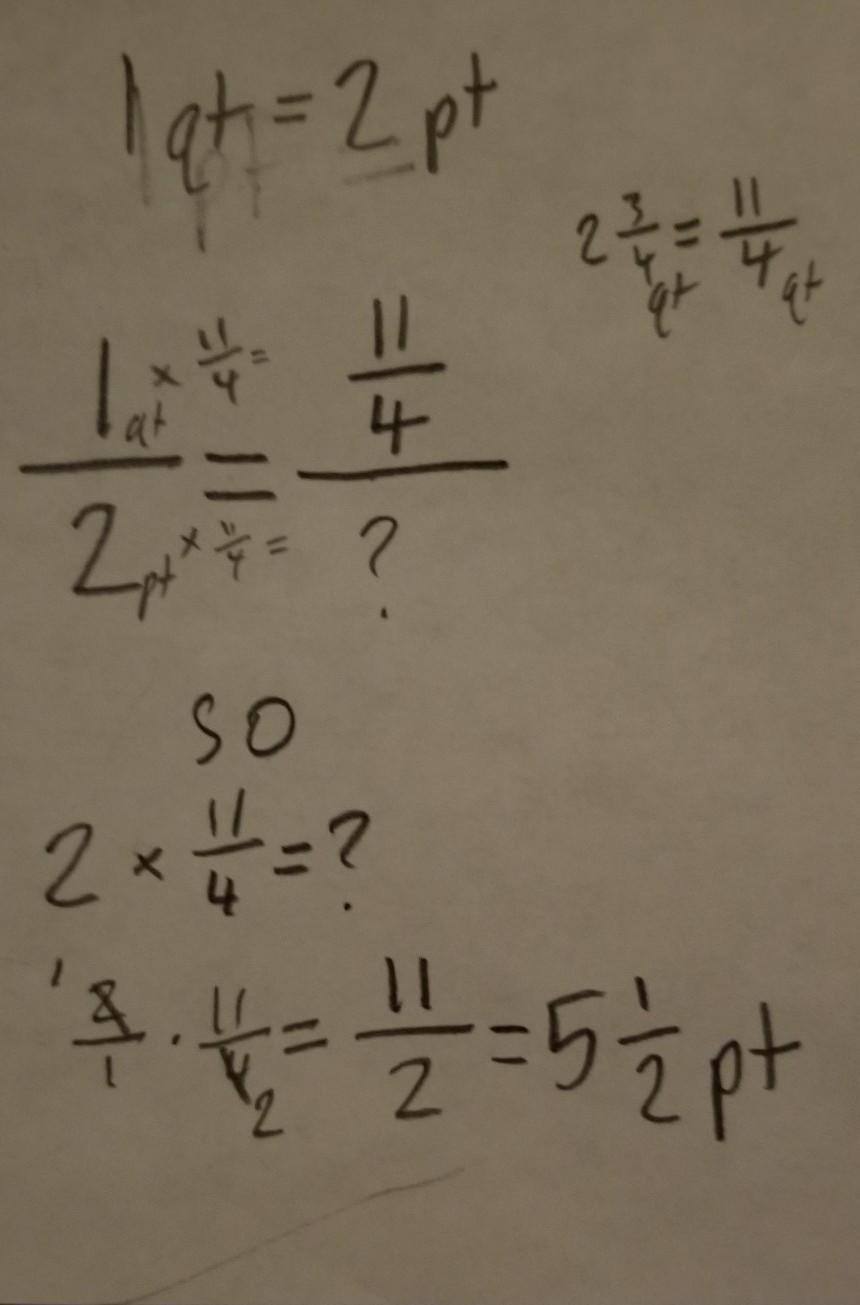 1 qt = 2 pt
2 3/4 qt = 11/4 qt
1 qt × 11/4 = 11/4
2 pt × 11/4 = ?
so
2 × 11/4 = ?
1 2/1 · 11/4 2 = 11/2 = 5 1/2 pt